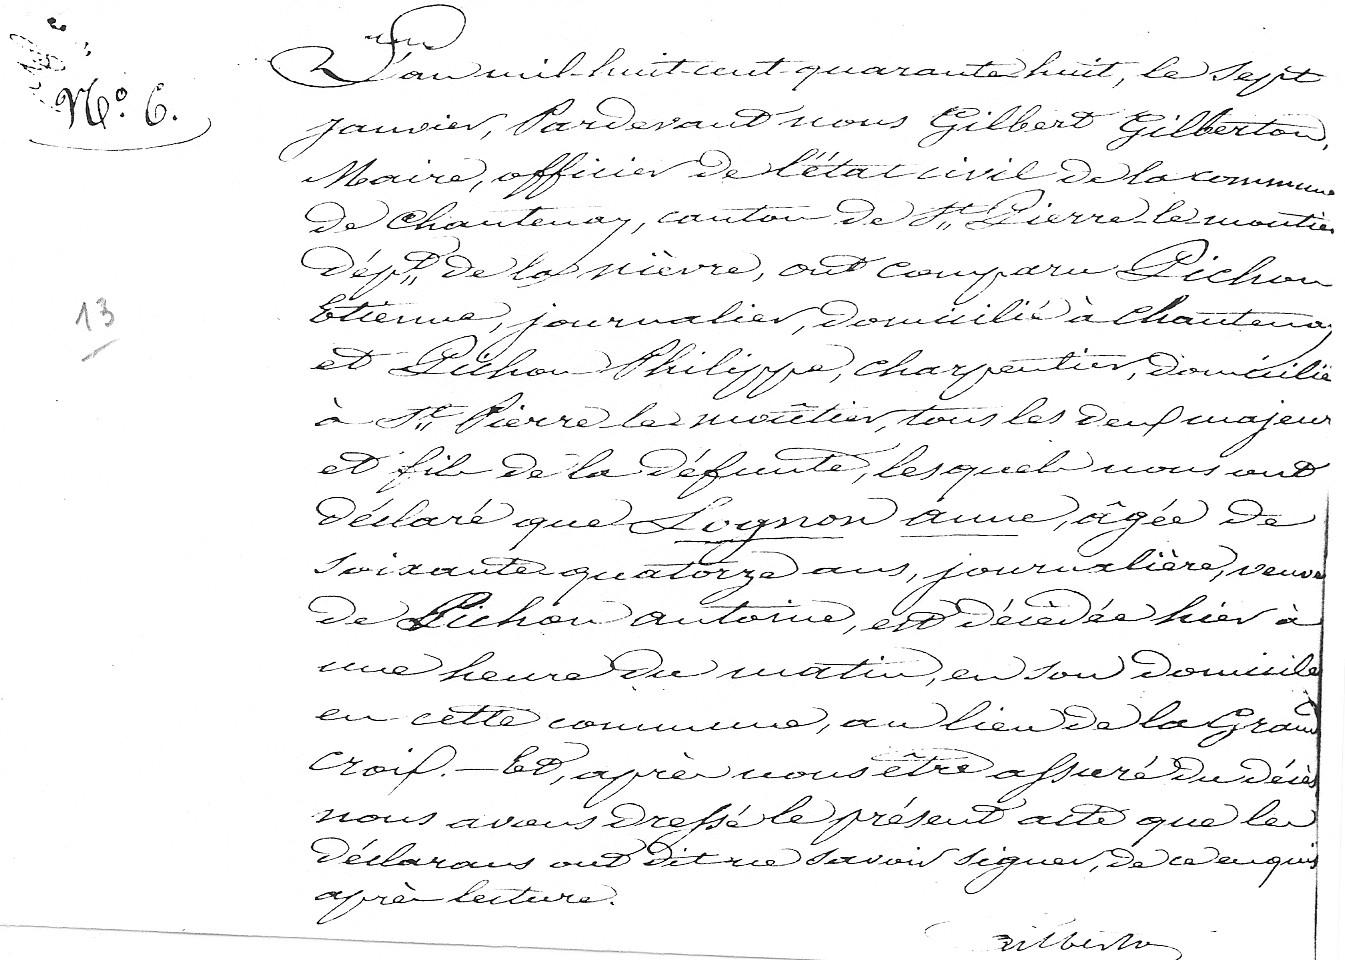 N.º 6.
L'an mil-huit-cent-quarante huit, le sept
janvier, Pardevant nous Gilbert Gilberton,
Maire, officier de l'état civil de la commune
de Chantenay, canton de St. Pierre-le-moutier
dépt. de la nièvre, ont comparu Pichon
Etienne, journalier, domicilié à Chantenay
et Pichon Philippe, charpentier, domicilié
à St. Pierre le moûtier, tous les deux majeurs
et fils de la défunte, lesquels nous ont
déclaré que Lognon anne, âgée de
soixante quatorze ans, journalière, veuve
de Pichon antoine, est décédée hier à
une heure du matin, en son domicile
en cette commune, au lieu de la Grand
Croix. — Et, après nous être assuré du décès
nous avons dressé le présent acte que les
déclarans ont dit ne savoir signer, de ce enquis
après lecture.
Gilberton
13